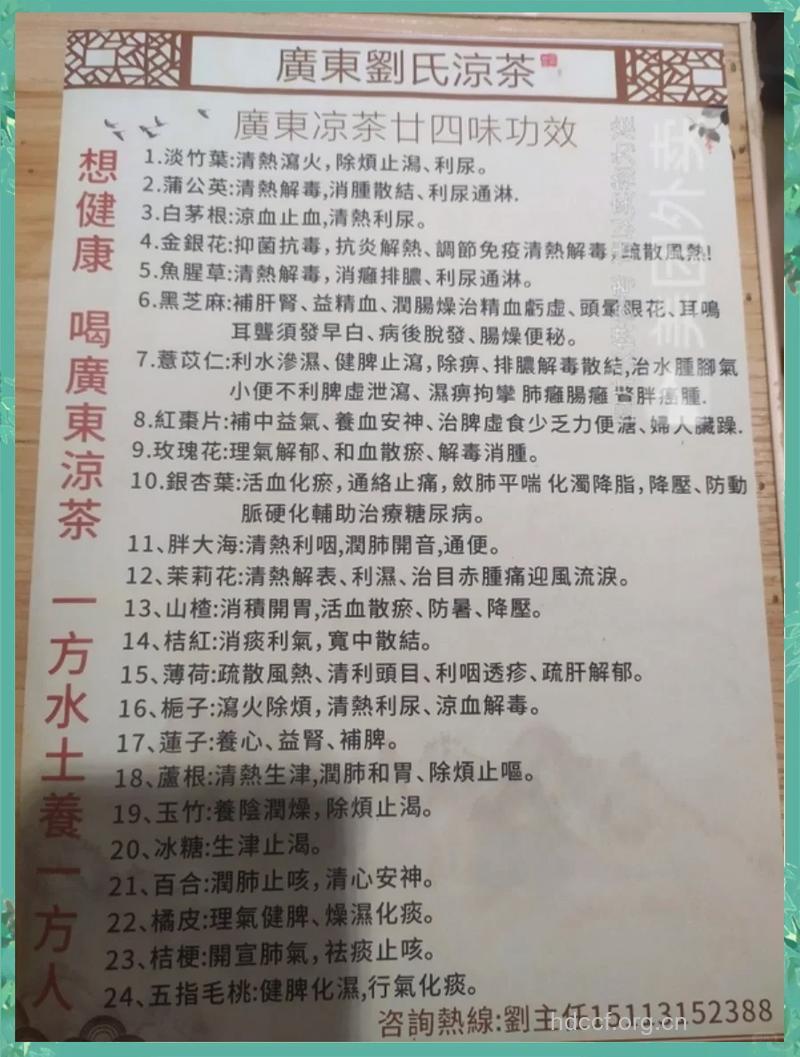 廣東劉氏涼茶
廣東凉茶廿四味功效
想健康 喝廣東涼茶 一方水土養一方人
1.淡竹葉:清熱瀉火,除煩止渴、利尿。
2.蒲公英:清熱解毒,消腫散結、利尿通淋.
3.白茅根:涼血止血,清熱利尿。
4.金銀花:抑菌抗毒,抗炎解熱、調節免疫清熱解毒,疏散風熱!
5.魚腥草:清熱解毒,消癰排膿、利尿通淋。
6.黑芝麻:補肝腎、益精血、潤腸燥治精血虧虛、頭暈眼花、耳鳴
耳聾須發早白、病後脫發、腸燥便秘。
7.薏苡仁:利水滲濕、健脾止瀉,除痹、排膿解毒散結,治水腫腳氣
小便不利脾虛泄瀉、濕痹拘攣 肺癰腸癰 贅胖癌腫.
8.紅棗片:補中益氣、養血安神、治脾虛食少乏力便溏、婦人臟躁.
9.玫瑰花:理氣解郁、和血散瘀、解毒消腫。
10.銀杏葉:活血化瘀,通絡止痛,斂肺平喘 化濁降脂,降壓、防動
脈硬化輔助治療糖尿病。
11、胖大海:清熱利咽,潤肺開音,通便。
12、茉莉花:清熱解表、利濕、治目赤腫痛迎風流淚。
13、山楂:消積開胃,活血散瘀、防暑、降壓。
14、桔紅:消痰利氣,寬中散結。
15、薄荷:疏散風熱、清利頭目、利咽透疹、疏肝解郁。
16、梔子:瀉火除煩,清熱利尿、涼血解毒。
17、蓮子:養心、益腎、補脾。
18、蘆根:清熱生津,潤肺和胃、除煩止嘔。
19、玉竹:養陰潤燥,除煩止渴。
20、冰糖:生津止渴。
21、百合:潤肺止咳,清心安神。
22、橘皮:理氣健脾、燥濕化痰。
23、桔梗:開宣肺氣,祛痰止咳。
24、五指毛桃:健脾化濕,行氣化痰。
咨詢熱線:劉主任15113152388
hdccf.org.cn
美团外卖